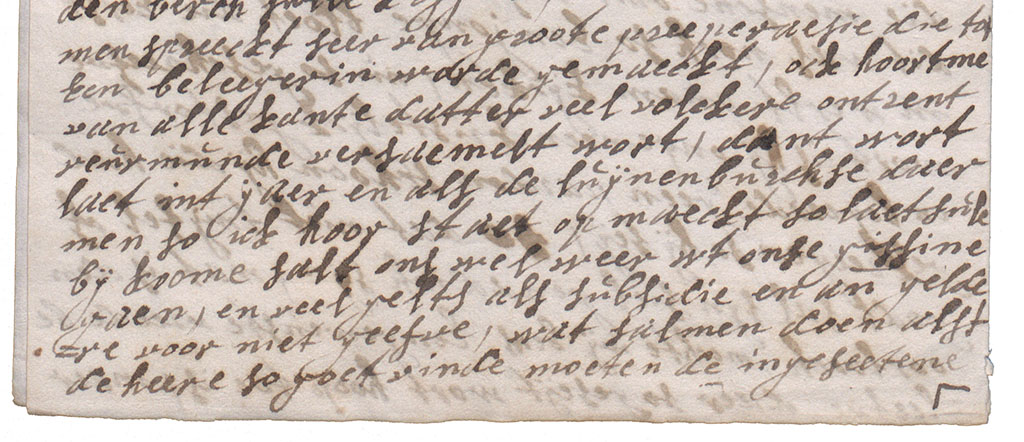 den berch
men spreeckt seer van groote preeperaesie die tot
een beleegerin worde gemaeckt, ock hoort me
van alle kante datter veel volckere ontrent
reurmunde versaemelt wort, dant wort
laet int jaer en als de luijnenburchse daer
men so ick hoor staet op maeckt so laet
bij koome salt ons wel weer wt onse gissine
gaen, en veel gelts als subsidie en an gelde
=re voor niet geefve, wat salmen doen alst
de heere so goet vinde moeten de ingeseetene